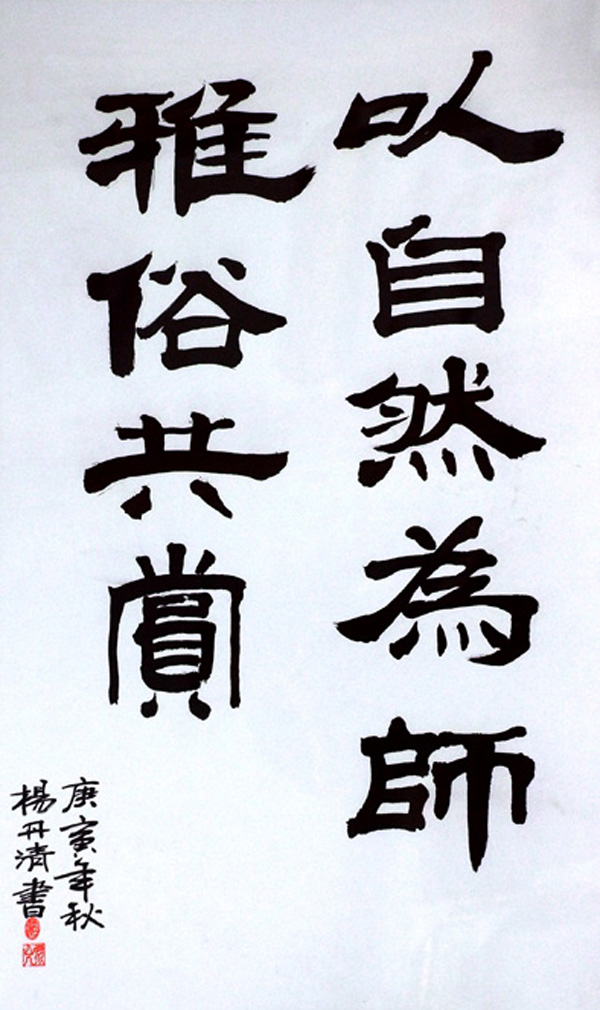 以自然為師
雅俗共賞
庚寅年秋
楊丹清書